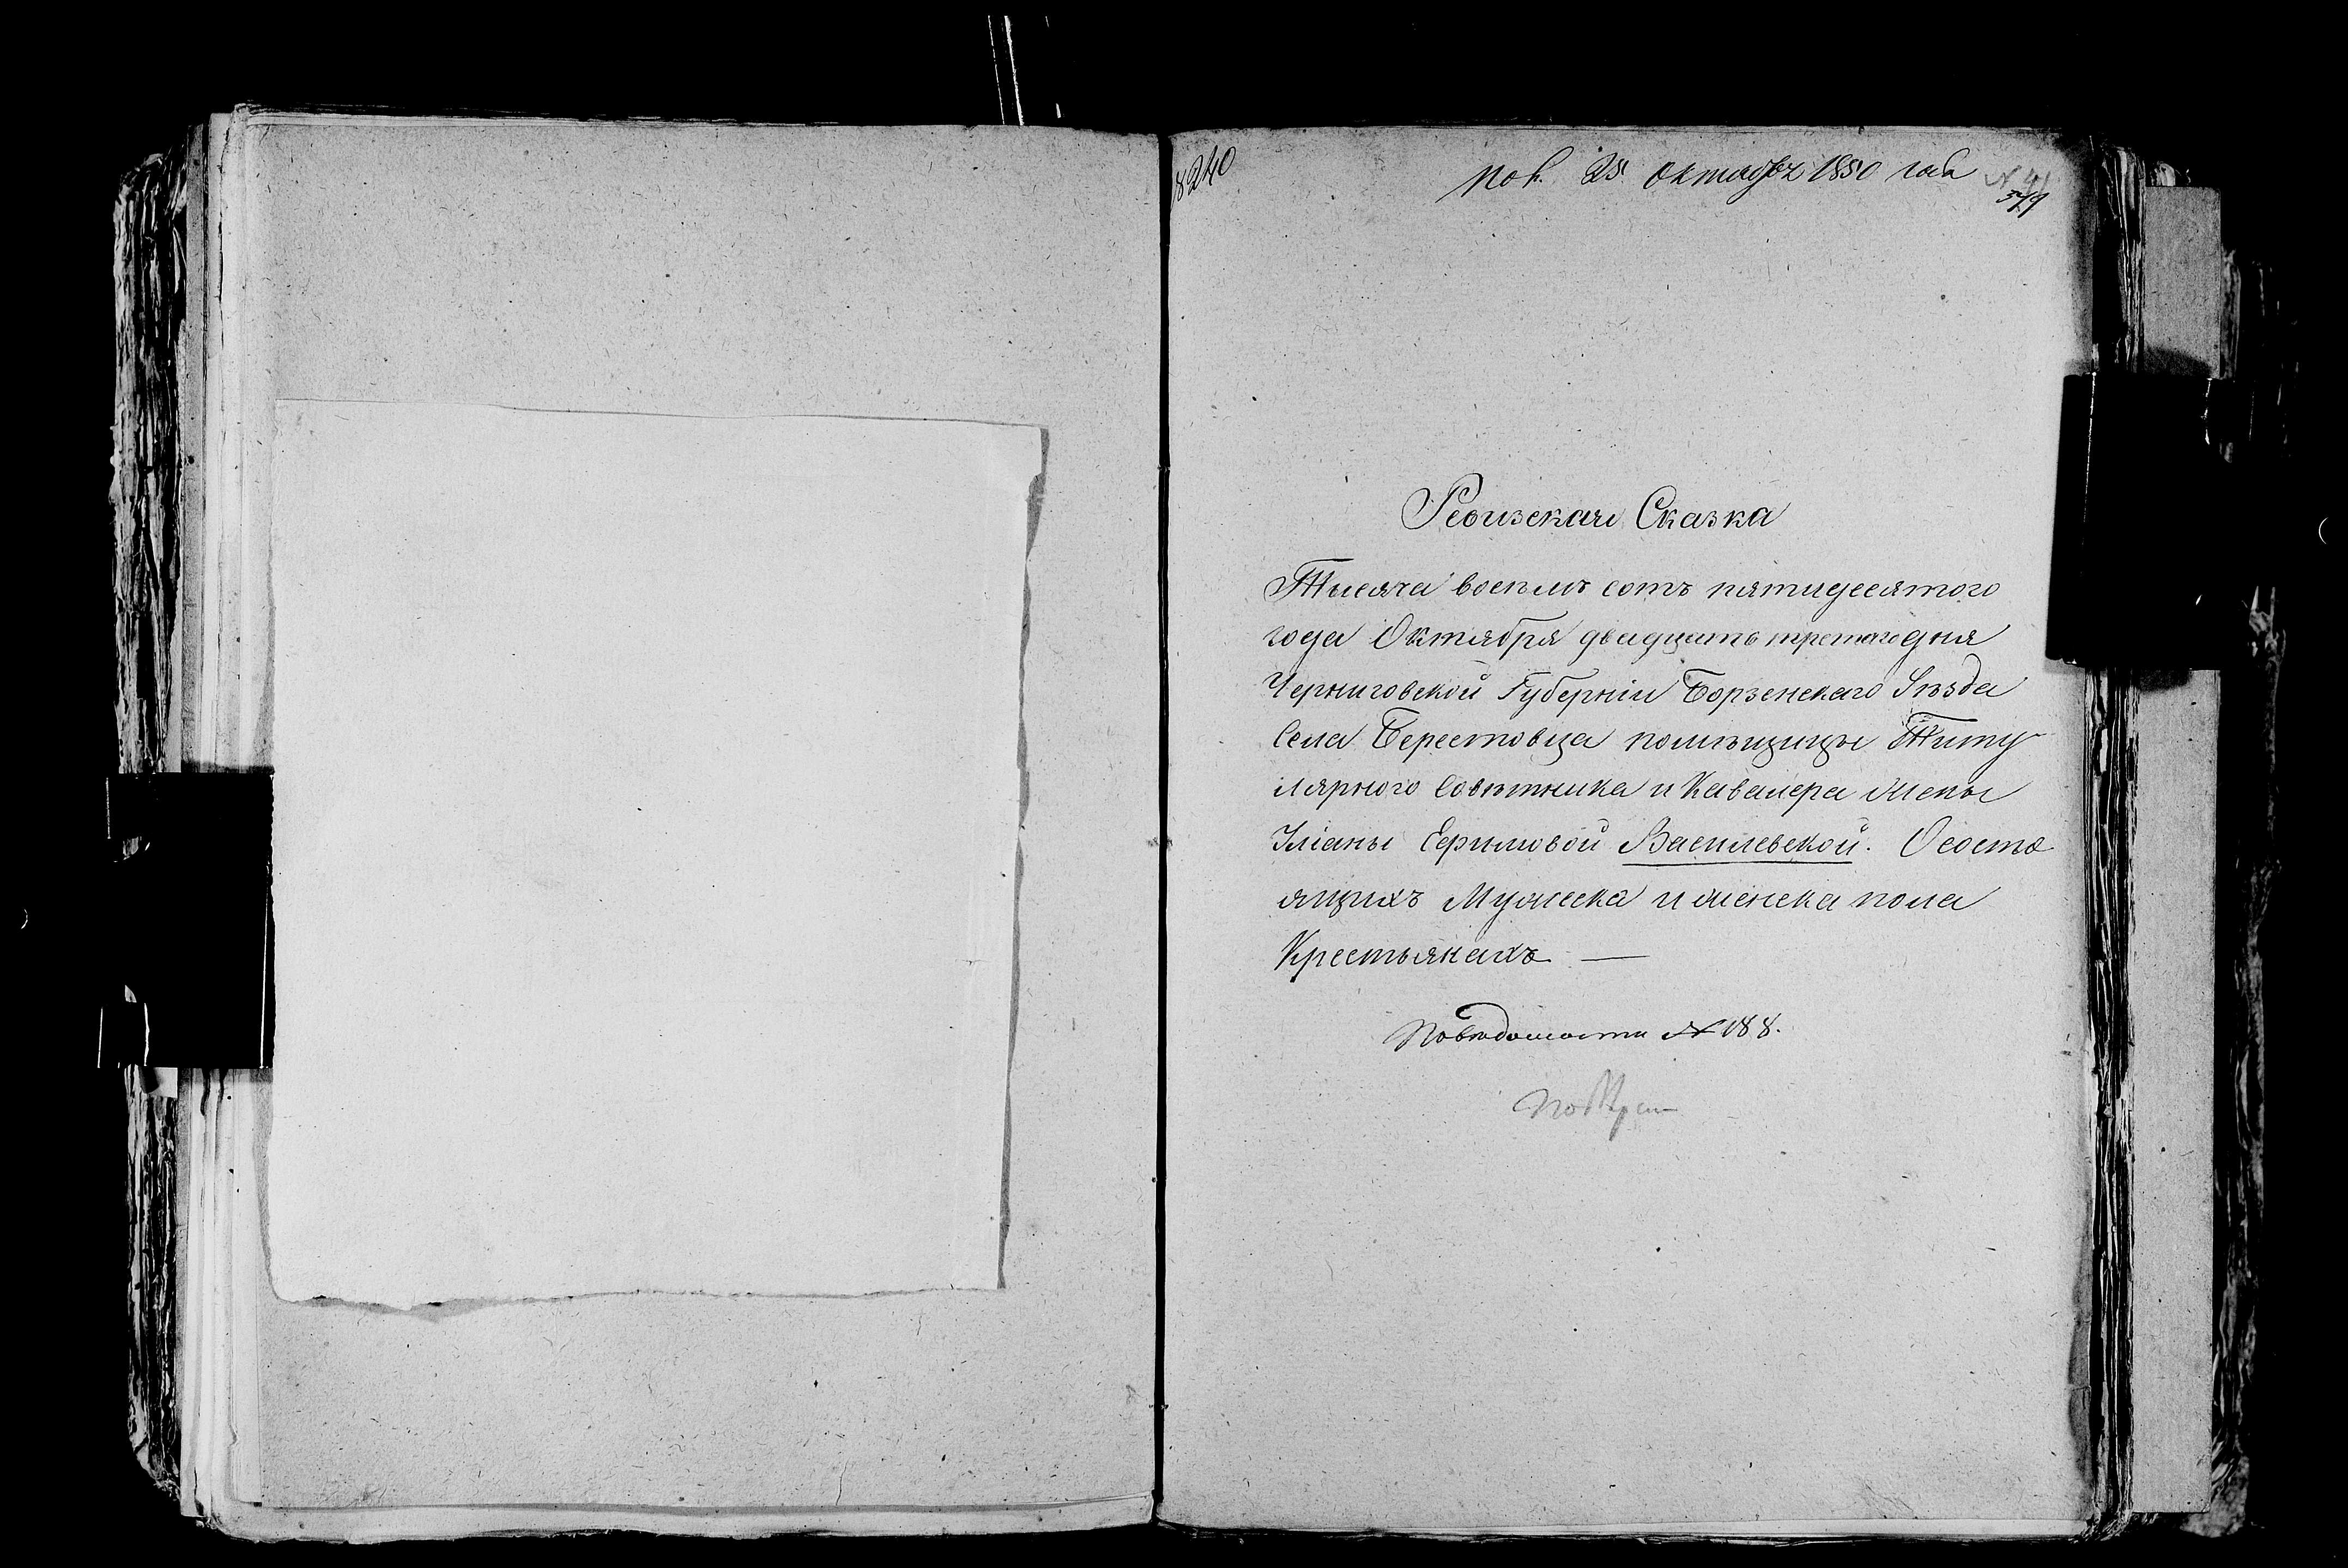 18240
Пов. 25 Октября 1850 года
379
Ревизская Сказка
Тысяча восемь сотъ пятидесятого
года Октября двадцать третего дня
Черниговской Губерніи Борзенскаго Уѣзда
Села Берестовца помѣщицы Титу
лярного Совѣтника и Кавалера жены
Уліаны Ефимовой Василевской. О состо
ящихъ Мужеска и женска пола
Крестьянахъ —
По вѣдомости № 188.